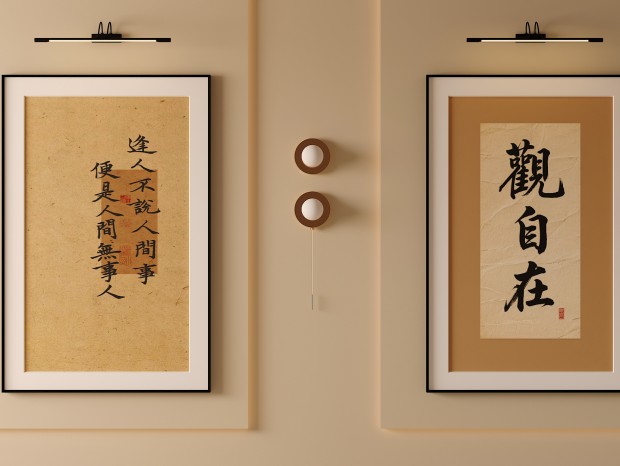 逢人不說人間事
便是人間無事人
觀自在